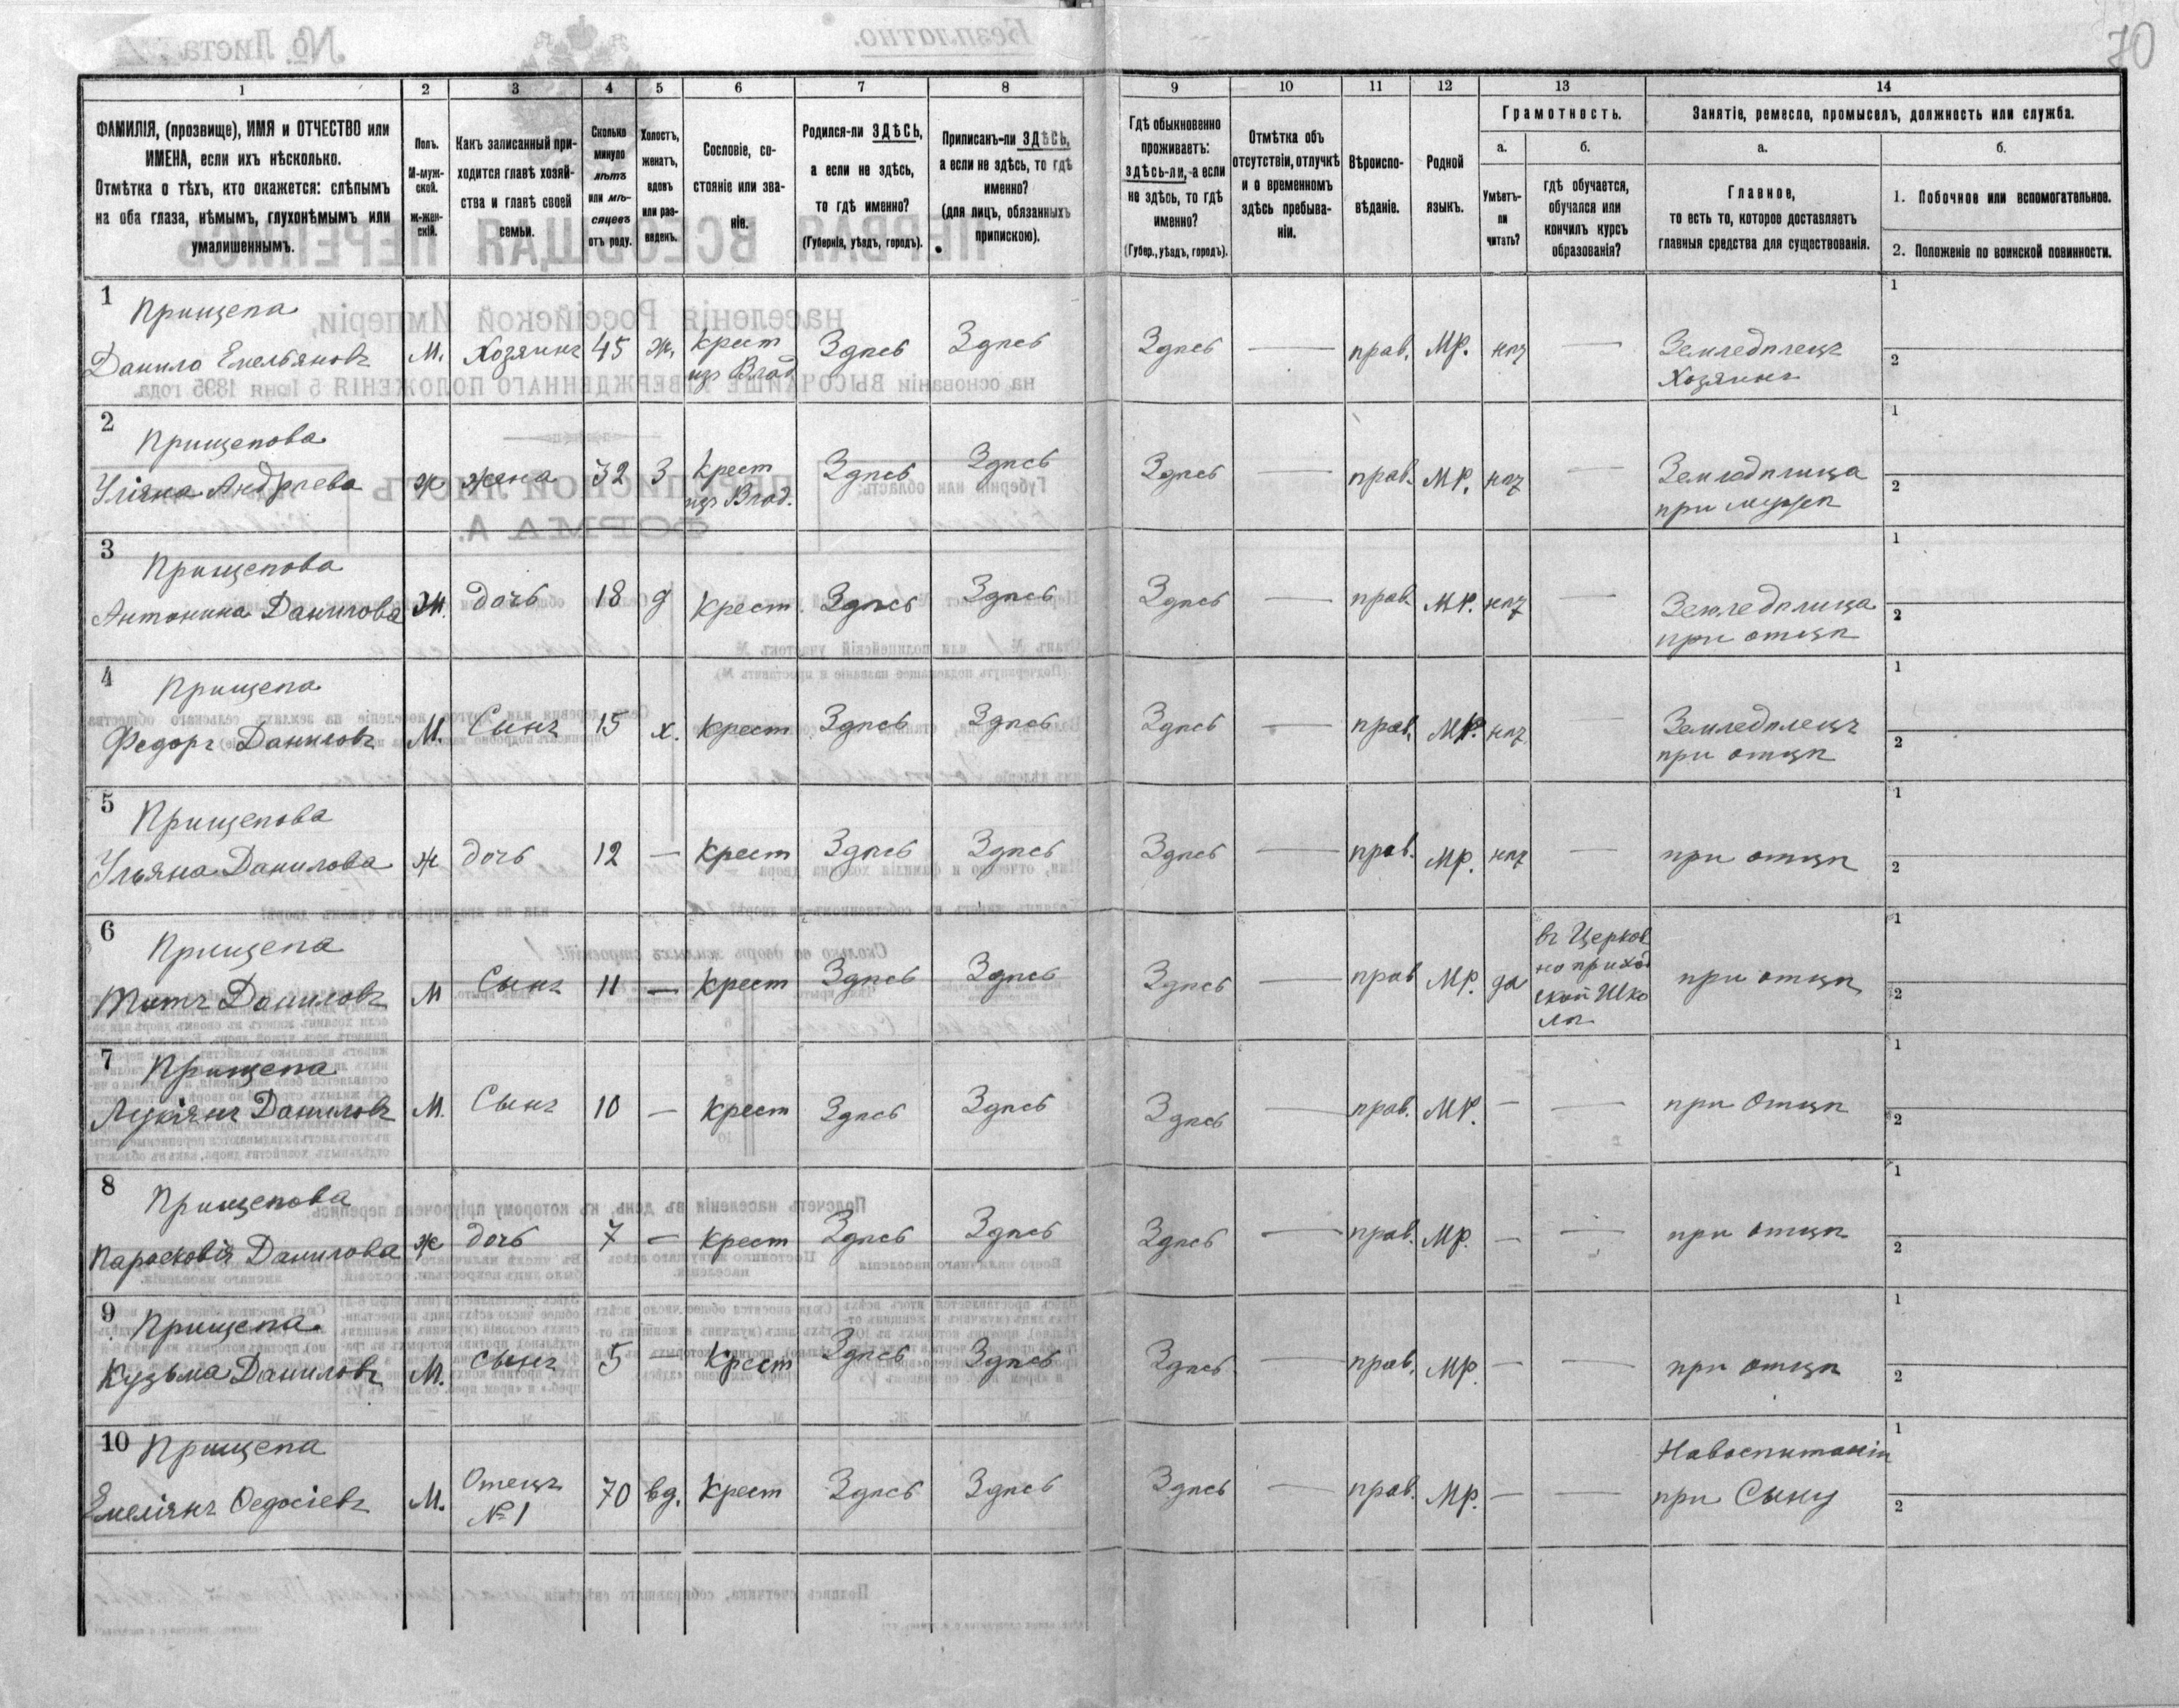 70
1 2 3 4 5 6 7 8 9 10 11 12 13 14
ФАМИЛІЯ, (прозвище), ИМЯ и ОТЧЕСТВО или
ИМЕНА, если ихъ нѣсколько.
Отмѣтка о тѣхъ, кто окажется: слѣпымъ
на оба глаза, нѣмымъ, глухонѣмымъ или
умалишеннымъ.
Полъ.
М-муж-
ской.
ж-жен-
скій.
Какъ записанный при-
ходится главѣ хозяй-
ства и главѣ своей
семьи.
Сколько
минуло
лѣтъ
или мѣ-
сяцевъ
отъ роду.
Холостъ,
женатъ,
вдовъ
или раз-
веденъ.
Сословіе, со-
стояніе или зва-
ніе.
Родился-ли ЗДѢСЬ,
а если не здѣсь,
то гдѣ именно?
(Губернія, уѣздъ, городъ).
Приписанъ-ли ЗДѢСЬ,
а если не здѣсь, то гдѣ
именно?
(для лицъ, обязанныхъ
припискою).
Гдѣ обыкновенно
проживаетъ:
здѣсь-ли, а если
не здѣсь, то гдѣ
именно?
(Губер., уѣздъ, городъ).
Отмѣтка объ
отсутствіи, отлучкѣ
и о временномъ
здѣсь пребыва-
ніи.
Вѣроиспо-
вѣданіе.
Родной
языкъ.
Грамотность.
а.
Умѣетъ-
ли
читать?
б.
гдѣ обучается,
обучался или
кончилъ курсъ
образованія?
Занятіе, ремесло, промыселъ, должность или служба.
а.
Главное,
то есть то, которое доставляетъ
главныя средства для существованія.
б.
1. Побочное или вспомогательное.
2. Положеніе по воинской повинности.
1 Прищепа
Данило Емельяновъ М. Хозяинъ 45 ж. Крест из Влад Здѣсь Здѣсь Здѣсь — прав. Мр. нѣт — Земледѣлецъ 1
Хозяинъ 2
2 Прищепова
Уліяна Андрѣева ж жена 32 З Крест из Влад. Здѣсь Здѣсь Здѣсь — прав. Мр. нѣт — Земледѣлица 1
при мужѣ 2
3 Прищепова
Антонина Данилова Ж. дочь 18 д Крест. Здѣсь Здѣсь Здѣсь — прав. Мр. нѣт — Земледѣлица 1
при отцѣ 2
4 Прищепа
Федоръ Даниловъ М. Сынъ 15 х. Крест Здѣсь Здѣсь Здѣсь — прав. Мр. нѣт — Земледѣлецъ 1
при отцѣ 2
5 Прищепова
Ульяна Данилова ж дочь 12 — Крест Здѣсь Здѣсь Здѣсь — прав. Мр. нѣт — при отцѣ 1
2
6 Прищепа
Титъ Даниловъ М Сынъ 11 — Крест Здѣсь Здѣсь Здѣсь — прав Мр. да въ Церков
но приход
ской Шко
лѣ при отцѣ 1
2
7 Прищепа
Лукіянъ Даниловъ М. Сынъ 10 — Крест Здѣсь Здѣсь Здѣсь — прав. Мр. — — при Отцѣ 1
2
8 Прищепова
Парасковія Данилова ж дочь 7 — Крест Здѣсь Здѣсь Здѣсь — прав. Мр. — — при отцѣ 1
2
9 Прищепа
Кузьма Даниловъ М. Сынъ 5 — Крест Здѣсь Здѣсь Здѣсь — прав. Мр. — — при отцѣ 1
2
10 Прищепа
Емеліянъ Федосіевъ М. Отецъ №1 70 вд. Крест Здѣсь Здѣсь Здѣсь — прав. Мр. — — Навоспитаніи 1
при Сыну 2